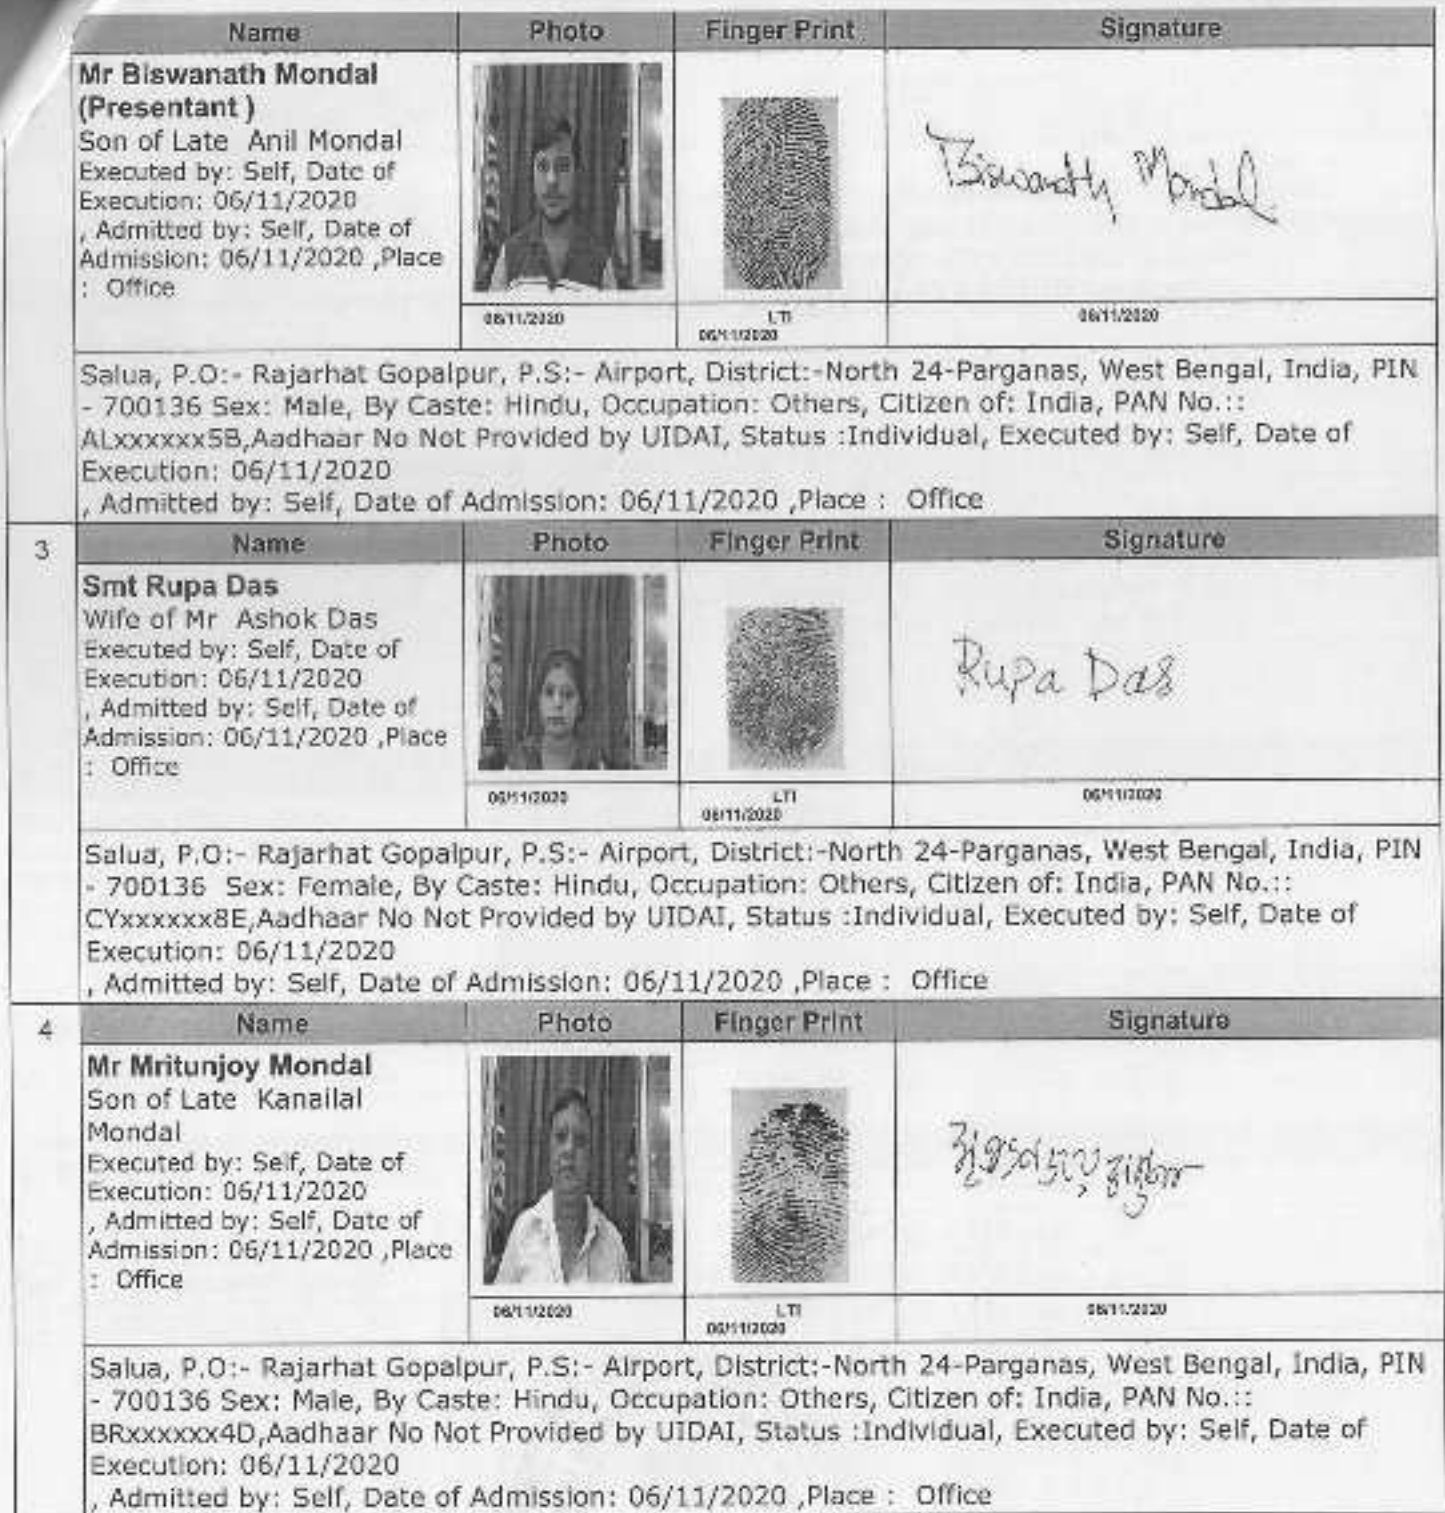 Name Photo Finger Print Signature
Mr Biswanath Mondal
(Presentant )
Son of Late Anil Mondal
Executed by: Self, Date of
Execution: 06/11/2020
, Admitted by: Self, Date of
Admission: 06/11/2020 ,Place
: Office
Biswanath Mondal
06/11/2020 LTI 06/11/2020
06/11/2020
Salua, P.O:- Rajarhat Gopalpur, P.S:- Airport, District:-North 24-Parganas, West Bengal, India, PIN
- 700136 Sex: Male, By Caste: Hindu, Occupation: Others, Citizen of: India, PAN No.::
ALxxxxxx5B,Aadhaar No Not Provided by UIDAI, Status :Individual, Executed by: Self, Date of
Execution: 06/11/2020
, Admitted by: Self, Date of Admission: 06/11/2020 ,Place : Office
3 Name Photo Finger Print Signature
Smt Rupa Das
Wife of Mr Ashok Das
Executed by: Self, Date of
Execution: 06/11/2020
, Admitted by: Self, Date of
Admission: 06/11/2020 ,Place
: Office
Rupa Das
06/11/2020 LTI 06/11/2020
06/11/2020
Salua, P.O:- Rajarhat Gopalpur, P.S:- Airport, District:-North 24-Parganas, West Bengal, India, PIN
- 700136 Sex: Female, By Caste: Hindu, Occupation: Others, Citizen of: India, PAN No.::
CYxxxxxx8E,Aadhaar No Not Provided by UIDAI, Status :Individual, Executed by: Self, Date of
Execution: 06/11/2020
, Admitted by: Self, Date of Admission: 06/11/2020 ,Place : Office
4 Name Photo Finger Print Signature
Mr Mritunjoy Mondal
Son of Late Kanailal
Mondal
Executed by: Self, Date of
Execution: 06/11/2020
, Admitted by: Self, Date of
Admission: 06/11/2020 ,Place
: Office
06/11/2020 LTI 06/11/2020
06/11/2020
Salua, P.O:- Rajarhat Gopalpur, P.S:- Airport, District:-North 24-Parganas, West Bengal, India, PIN
- 700136 Sex: Male, By Caste: Hindu, Occupation: Others, Citizen of: India, PAN No.::
BRxxxxxx4D,Aadhaar No Not Provided by UIDAI, Status :Individual, Executed by: Self, Date of
Execution: 06/11/2020
, Admitted by: Self, Date of Admission: 06/11/2020 ,Place : Office